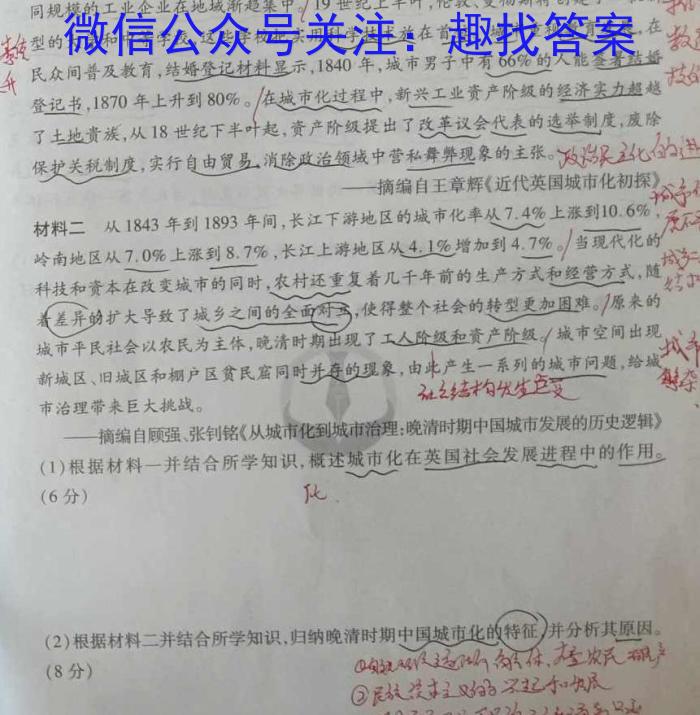 同规模的工业企业在地域渐趋集中。19世纪上半叶,伦敦、
微信公众号关注:趣找答案
民众间普及教育,结婚登记材料显示,1840年,城市男子中有66%的人能签署结婚
登记书,1870年上升到80%。在城市化过程中,新兴工业资产阶级的经济实力超越
了土地贵族,从18世纪下半叶起,资产阶级提出了改革议会代表的选举制度,废除
保护关税制度,实行自由贸易,消除政治领域中营私舞弊现象的主张。政治民主化的进
——摘编自王章辉《近代英国城市化初探》
材料二 从1843年到1893年间,长江下游地区的城市化率从7.4%上涨到10.6%,
岭南地区从7.0%上涨到8.7%,长江上游地区从4.1%增加到4.7%。当现代化的
科技和资本在改变城市的同时,农村还重复着几千年前的生产方式和经营方式,随
着差异的扩大导致了城乡之间的全面对立,使得整个社会的转型更加困难。原来的
城市平民社会以农民为主体,晚清时期出现了工人阶级和资产阶级。城市空间出现
新城区、旧城区和棚户区贫民窟同时并存的现象,由此产生一系列的城市问题,给城
市治理带来巨大挑战。
社会结构发生巨变
——摘编自顾强、张钊铭《从城市化到城市治理:晚清时期中国城市发展的历史逻辑》
(1)根据材料一并结合所学知识,概述城市化在英国社会发展进程中的作用。
(6分)
化
(2)根据材料二并结合所学知识,归纳晚清时期中国城市化的特征,并分析其原因。
(8分)
②民族资本主义的兴起和发展